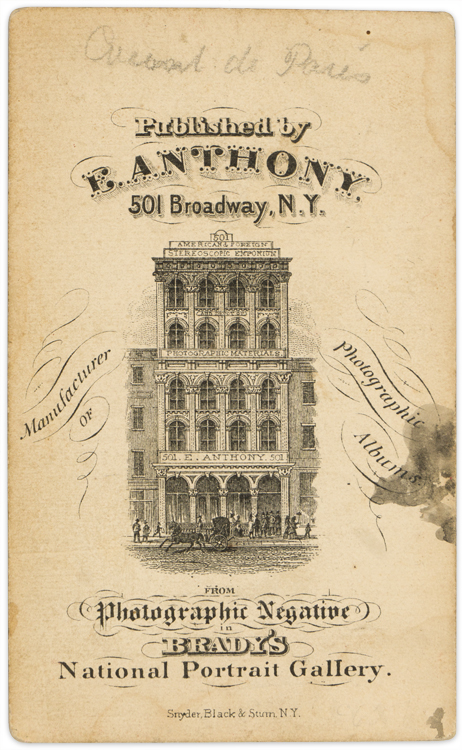 de Paris
Published by
E. ANTHONY.
501 Broadway, N.Y.
501
AMERICAN & FOREIGN
STEREOSCOPIC EMPORIUM
PHOTOGRAPHIC MATERIALS
501. E. ANTHONY. 501
Manufacturer
OF
Photographic
Albums.
FROM
Photographic Negative
in
BRADY'S
National Portrait Gallery.
Snyder, Black & Sturn, N.Y.